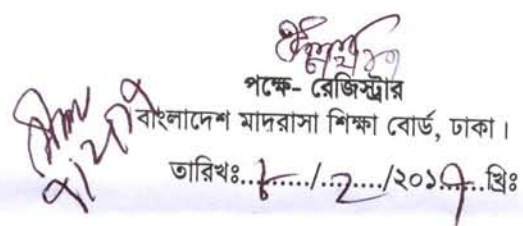 পক্ষে- রেজিস্ট্রার
বাংলাদেশ মাদরাসা শিক্ষা বোর্ড, ঢাকা।
তারিখঃ......./..২..../২০১৭....খ্রিঃ